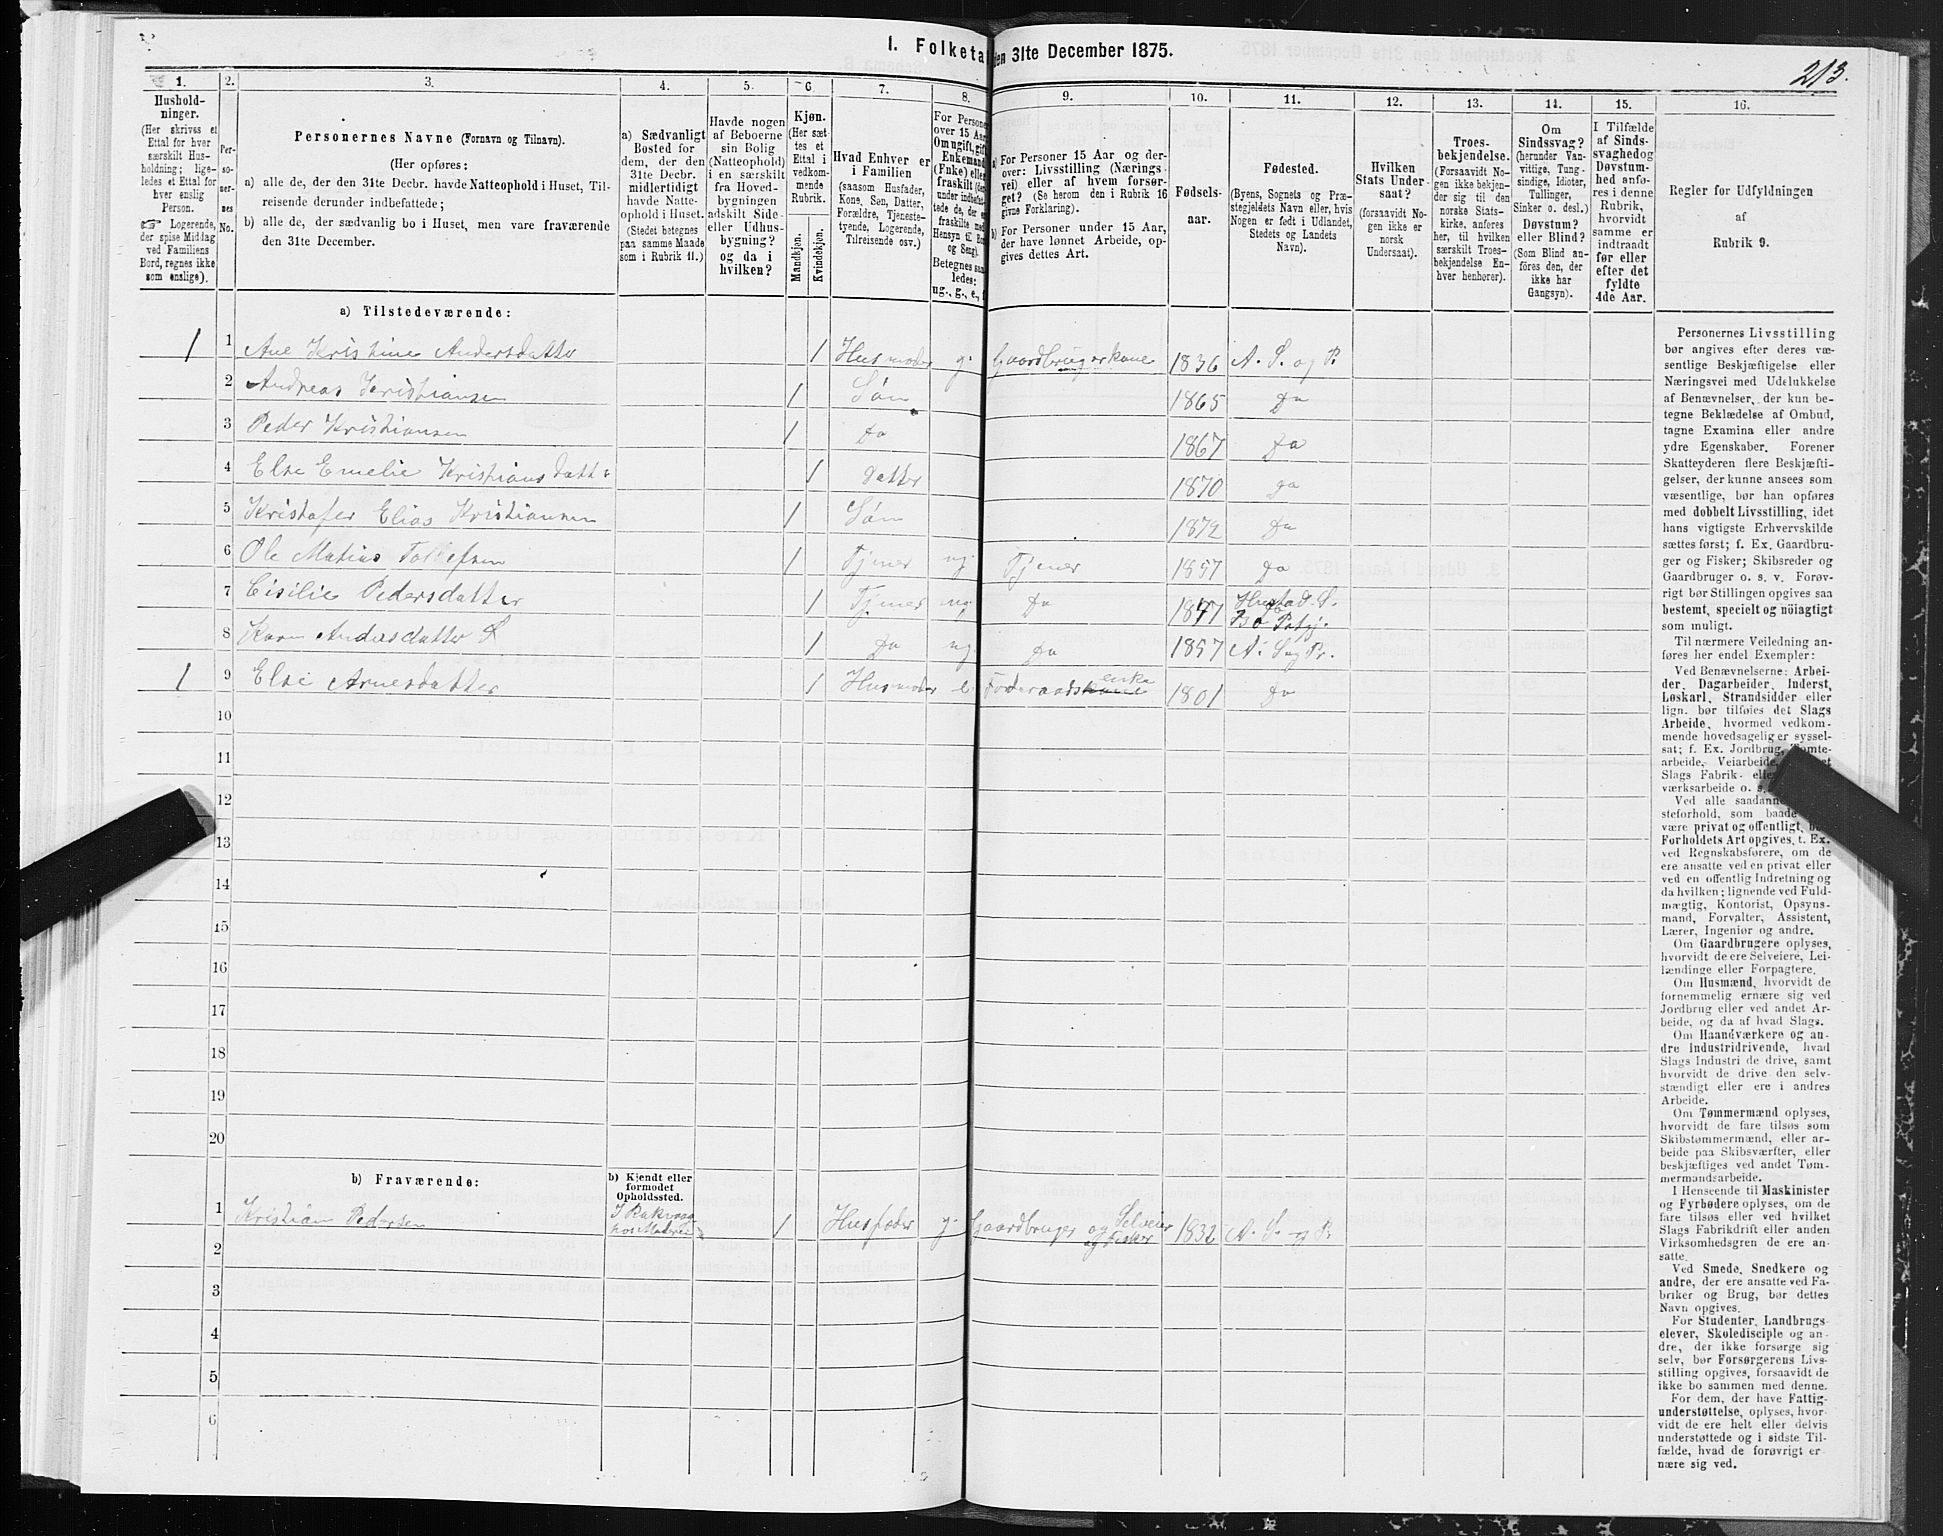 1. Folketa
den 31te December 1875.
213.
1.
2.
3.
4.
5.
6
7.
8.
9.
10.
11.
12.
13.
14.
15.
16.
Hushold-
ninger.
(Her skrives et
Ettal for hver
særskilt Hus-
holdning; lige-
ledes et Ettal for
hver enslig
Person.
☞ Logerende,
der spise Middag
ved Familiens
Bord, regnes ikke
som enslige).
Per-
so-
ner-
nes
No.
Personernes Navne (Fornavn og Tilnavn).
(Her opføres:
a) alle de, der den 31te Decbr. havde Natteophold i Huset, Til-
reisende derunder indbefattede;
b) alle de, der sædvanlig bo i Huset, men vare fraværende
den 31te December.
a) Sædvanligt
Bosted for
dem, der den
31te Decbr.
midlertidigt
havde Natte-
ophold i Huset.
(Stedet betegnes
paa samme Maade
som i Rubrik 11.)
Havde nogen
af Beboerne
sin Bolig
(Natteophold)
i en særskilt
fra Hoved-
bygningen
adskilt Side-
eller Udhus-
bygning?
og da i
hvilken?
Kjøn.
(Her sæt-
tes et
Ettal i
vedkom-
mende
Rubrik.
Mandkjøn.
Kvindekjøn.
Hvad Enhver er
i Familien
(saasom Husfader,
Kone, Søn, Datter,
Forældre, Tjeneste-
tyende, Logerende,
Tilreisende osv.)
For Personer
over 15 Aar
Om ugift, gift
Enkemand
(Enke) eller
fraskilt (der-
under indbefat-
tede de, der er
fraskilte med
Hensyn til Bord
og Seng).
Betegnes saa-
ledes:
ug., g., e., f.
a) For Personer 15 Aar og der-
over: Livsstilling (Nærings-
vei) eller af hvem forsør-
get? (Se herom den i Rubrik 16
givne Forklaring).
b) For Personer under 15 Aar,
der have lønnet Arbeide, op-
gives dettes Art.
Fødsels-
aar.
Fødested.
(Byens, Sognets og Præ-
stegjeldets Navn eller, hvis
Nogen er født i Udlandet,
Stedets og Landets
Navn).
Hvilken
Stats Under-
saat?
(forsaavidt No-
gen ikke er
norsk
Undersaat).
Troes-
bekjendelse.
(Forsaavidt No-
gen ikke bekjen-
der sig til den
norske Stats-
kirke, anføres
her, til hvilken
særskilt Troes-
bekjendelse En-
hver henhører).
Om
Sindssvag?
(herunder Van-
vittige, Tung-
sindige, Idioter,
Tullinger,
Sinker o. desl.)
Døvstum?
eller Blind?
(Som Blind an-
føres den, der
ikke har
Gangsyn).
I Tilfælde
af Sinds-
svaghed og
Døvstum-
hed anfø-
res i denne
Rubrik,
hvorvidt
samme er
indtraadt
før eller
efter det
fyldte
4de Aar.
Regler for Udfyldningen
af
Rubrik 9.
a) Tilstedeværende:
1 1 Ane Kristine Andersdatter 1 Husmoder g. Gaardbrugerkone 1836 A. S. og P.
2 Andreas Kristiansen 1 Søn 1865 Do
3 Peder Kristiansen 1 Do 1867 Do
4 Else Emelie Kristiansdatter 1 Datter 1870 Do
5 Kristofer Elias Kristiansen 1 Søn 1872 Do
6 Ole Matias Tollefsen 1 Tjener ug. Tjener 1857 Do
7 Cisilie Pedersdatter 1 Tjener ug. Do 1847 Hustad S.
Bo Pstgj.
8 Karn Andersdatter 1 Do ug. Do 1857 A. S og Pr.
1 9 Else Arnesdatter 1 Husmoder e. Foderaadskone enke 1801 Do
10
11
12
13
14
15
16
17
18
19
20
b) Fraværende:
b) Kjendt eller
formodet
Opholdssted.
1 Kristian Pedersen 1 Husfader g. Gaardbruger og Selveier 1832 A. S. og P.
og Fisker
2
3
4
5
6
Personernes Livsstilling
bør angives efter deres væ-
sentlige Beskjæftigelse eller
Næringsvei med Udelukkelse
af Benævnelser, der kun be-
tegne Beklædelse af Ombud,
tagne Examina eller andre
ydre Egenskaber. Forener
Skatteyderen flere Beskjæfti-
gelser, der kunne ansees som
væsentlige, bør han opføres
med dobbelt Livsstilling, idet
hans vigtigste Erhvervskilde
sættes først; f. Ex. Gaardbru-
ger og Fisker; Skibsreder og
Gaardbruger o. s. v. Forøv-
rigt bør Stillingen opgives saa
bestemt, specielt og nöiagtigt
som muligt.
Til nærmere Veiledning an-
føres her endel Exempler:
Ved Benævnelserne: Arbei-
der, Dagarbeider, Inderst,
Løskarl, Strandsidder eller
lign. bør tilføies det Slags
Arbeide, hvormed vedkom-
mende hovedsagelig er syssel-
sat; f. Ex. Jordbrug, Tomte-
arbeide, Veiarbeide,
Slags Fabrik- eller
værksarbeide o. s.
Ved alle saadanne
steforhold, som baade
være privat og offentligt, bør
Forholdets Art opgives, t. Ex.
ved Regnskabsførere, om de
ere ansatte ved en privat eller
ved en offentlig Indretning og
da hvilken; lignende ved Fuld-
mægtig, Kontorist, Opsyns-
mand, Forvalter, Assistent,
Lærer, Ingeniør og andre.
Om Gaardbrugere oplyses,
hvorvidt de ere Selveiere, Lei-
lændinge eller Forpagtere.
Om Husmænd, hvorvidt de
fornemmelig ernære sig ved
Jordbrug eller ved andet Ar-
beide, og da af hvad Slags.
Om Haandværkere og an-
dre Industridrivende, hvad
Slags Industri de drive, samt
hvorvidt de drive den selv-
stændigt eller ere i andres
Arbeide.
Om Tømmermænd oplyses,
hvorvidt de fare tilsøs som
Skibstømmermænd, eller ar-
beide paa Skibsværfter, eller
beskjæftiges ved andet Tøm-
mermandsarbeide.
I Henseende til Maskinister
og Fyrbødere oplyses, om de
fare tilsøs eller ved hvilket
Slags Fabrikdrift eller anden
Virksomhedsgren de ere an-
satte.
Ved Smede, Snedkere og
andre, der ere ansatte ved Fa-
briker og Brug, bør dettes
Navn opgives.
For Studenter, Landbrugs-
elever, Skoledisciple og an-
dre, der ikke forsørge sig
selv, bør Forsørgerens Livs-
stilling opgives, forsaavidt de
ikke bo sammen med denne.
For dem, der have Fattig-
understøttelse, oplyses, hvor-
vidt de ere helt eller delvis
understøttede og i sidste Til-
fælde, hvad de forøvrigt er
nære sig ved.